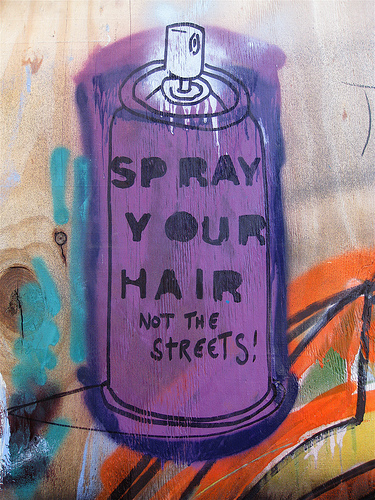 SPRAY
YOUR
HAIR
NOT THE
STREETS!